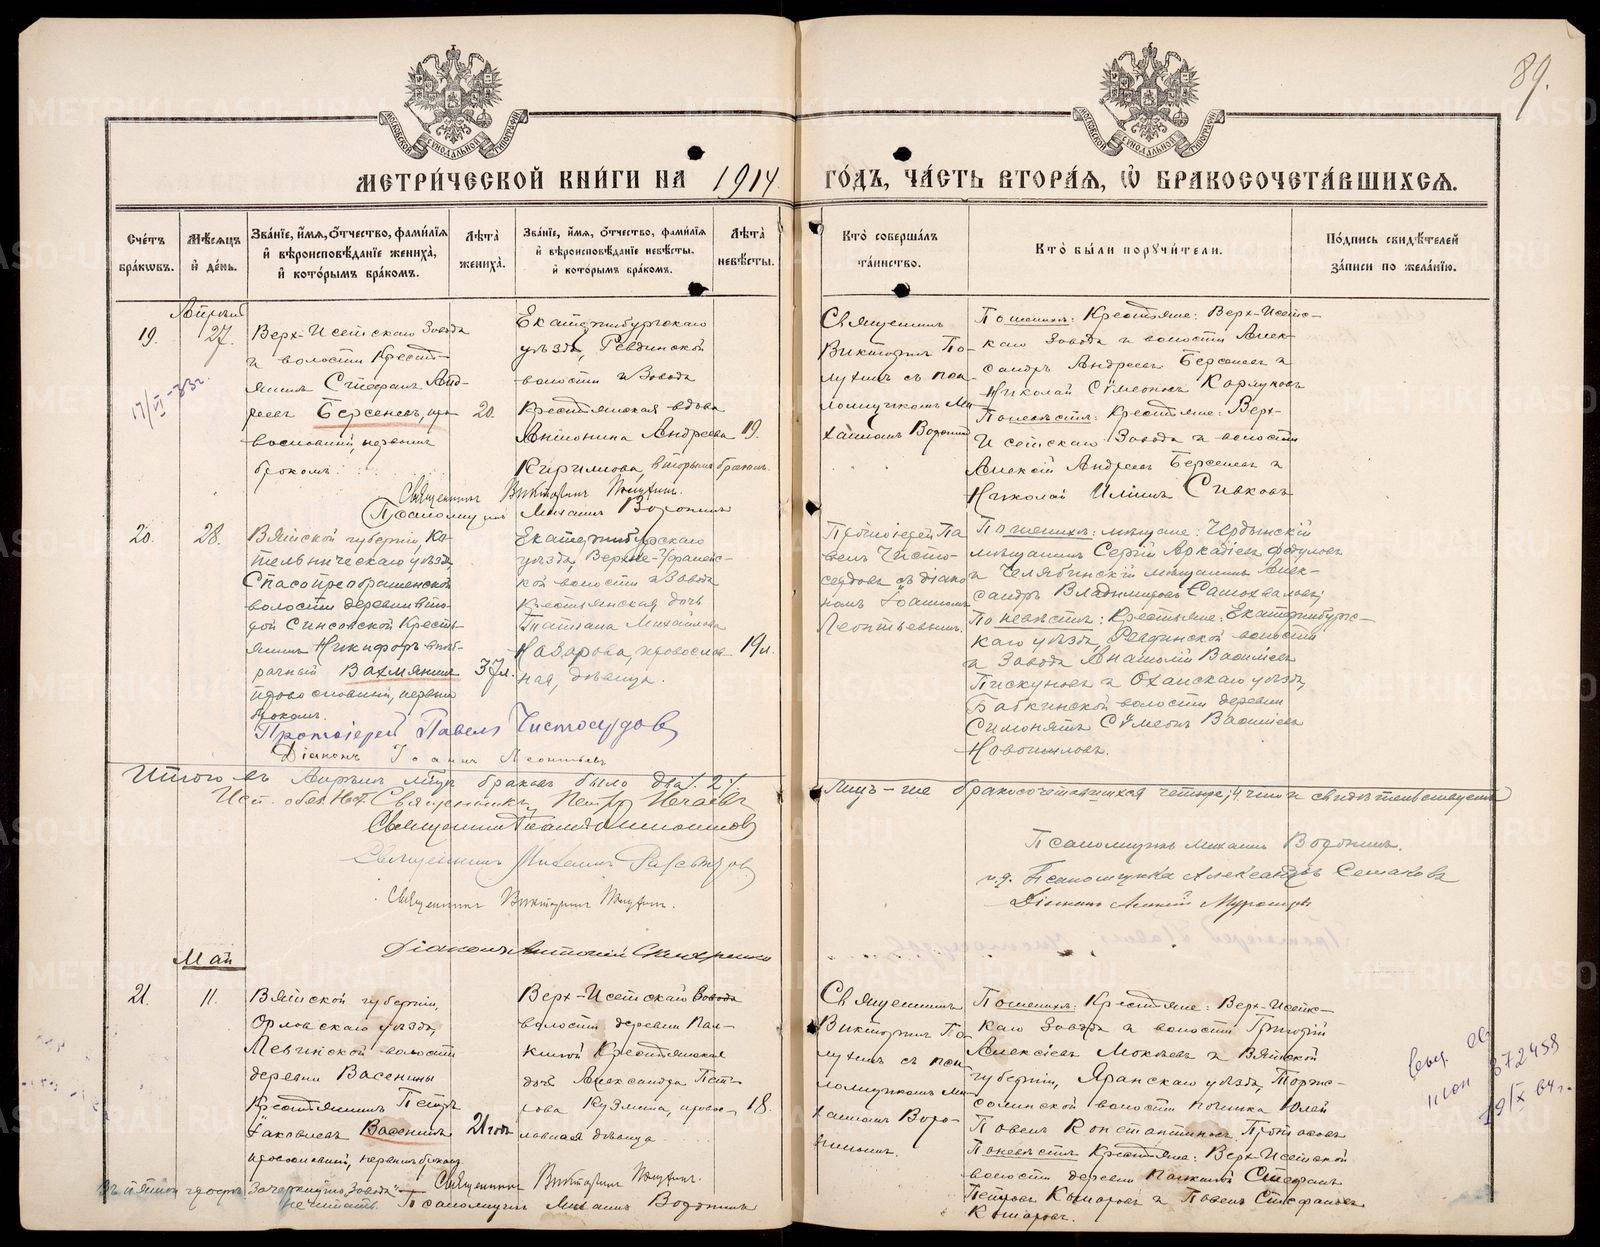 89.
МЕТРИ́ЧЕСКОЙ КНИ́ГИ НА 1914 ГО́ДЪ, ЧА́СТЬ ВТОРА́Я, Ѽ БРАКОСОЧЕТА́ВШИХСЯ.
Сче́тъ бра́кѡвъ.
Мѣ́сяцъ и҆ де́нь.
Зва́нїе, и҆́мя, ѻ҆́тчество, фами́лїя и҆ вѣроисповѣ́данїе жениха̀, и҆ кото́рымъ бра́комъ.
Лѣ́та жениха̀.
Зва́нїе, и҆́мя, ѻ҆́тчество, фами́лїя и҆ вѣроисповѣ́данїе невѣ́сты, и҆ кото́рымъ бра́комъ.
Лѣ́та невѣ́сты.
Кто̀ соверша́лъ та́инство.
Кто̀ бы́ли поручи́тели.
По́дпись свидѣ́телей за́писи по жела́нїю.
19.
Апрѣль
27.
Верх-Исетскаго Завода
и волости Кресть-
янинъ Стефанъ Анд-
реевъ Берсеневъ, пра-
вославный, первымъ
бракомъ.
20.
Екатеринбургскаго
уѣзда, Ревдинской
волости и Завода
Крестьянская вдова
Антонина Андреева
Кирилова, вторымъ бракомъ.
19.
Священникъ
Викторинъ По-
лухинъ съ псал-
ломщикомъ Ми-
хаиломъ Ворониымъ
По женихѣ: Крестьяне: Верх-Исетс-
каго Завода и волости Алек-
сандръ Андреевъ Берсеневъ и
Николай Сумеоновъ Кормуковъ
По невѣстѣ: Крестьяне: Верх-
Исетскаго Завода и волости
Алексій Андреевъ Берсеневъ и
Николай Иліинъ Сивковъ
Священникъ Викторинъ Полухинъ.
Псаломщикъ Михаилъ Воронинъ
20.
28.
Вятской губерніи, Ко-
тельническаго уѣзда
Спасопреображенской
волости деревни Вто-
рой Синсовской Кресть-
янинъ Никифоръ внѣб-
рачный Вахмянинъ
православный, первымъ
бракомъ.
37 л.
Екатеринбургскаго
уѣзда, Верхне-Уфалейс-
кой волости и Завода
Крестьянская дочь
Татіана Михайлова
Назарова, православ-
ная, дѣвица.
19 л.
Протоіерей Па-
велъ Чисто-
сердовъ съ діако-
номъ Іоанномъ
Леонтьевымъ.
По женихѣ: мѣщане: Чердынскій
мѣщанинъ Сергій Аркадіевъ Федуловъ
и Челябинскій мѣщанинъ Алек-
сандръ Владимировъ Самохваловъ;
По невѣстѣ: Крестьяне: Екатеринбургс-
каго уѣзда, Ревдинской волости
и Завода Анатолій Василіевъ
Пискуновъ и Оханскаго уѣзда,
Бабкинской волости деревни
Симонятъ Сумеонъ Василіевъ
Новожиловъ.
Протоіерей Павелъ Чистосердовъ
Діаконъ Іоаннъ Леонтьевъ
Итого въ Апрѣлѣ м-цѣ браковъ было два /. 2 /.
Лицъ-же бракосочетавшихся четыре; 4. что и свидѣтельствуемъ
Священникъ Петръ Нечаевъ
Священникъ
Священникъ Михаилъ
Священникъ Викторинъ Полухинъ.
Діаконъ Антоній
Псаломщикъ Михаилъ Воронинъ.
и.д. Псаломщика Александръ Семаковъ
Діаконъ
Май
21.
11.
Вятской губерніи,
Орловскаго уѣзда,
Левинской волости
деревни Васенины
Крестьянинъ Петръ
Іаковлевъ Васенинъ
православный, первымъ бракомъ
21 годъ
Верх-Исетскаго Завода
волости деревни Пал-
киной Крестьянская
дочь Александра Пет-
рова Кузмина, право-
славная дѣвица.
18.
Священникъ
Викторинъ По-
лухинъ съ пса-
ломщикомъ Ми-
хаиломъ Воро-
нинымъ.
По женихѣ: Крестьяне: Верх-Исетс-
каго Завода и волости Григорій
Алексіевъ Мокѣевъ и Вятской
губерніи, Яранскаго уѣзда, Торже-
Павелъ Константиновъ Протасовъ
По невѣстѣ Крестьяне: Верх-Исетской
волости деревни Палкиной Стефанъ
Петровъ Комаровъ и Павелъ Стефановъ
Комаровъ.
Въ пятой графѣ зачеркнуто „Завода" не читать.
Священникъ Викторинъ Полухинъ.
Псаломщикъ Михаилъ Воронинъ
872459
19/IX 64 г.